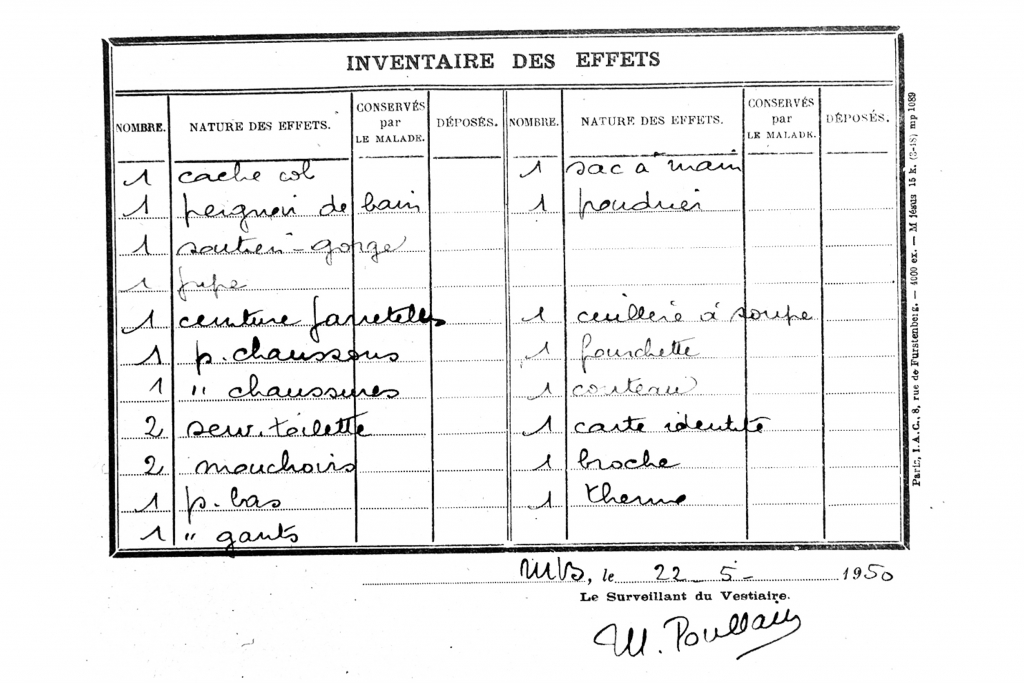 INVENTAIRE DES EFFETS
NOMBRE. NATURE DES EFFETS. CONSERVÉS par LE MALADE. DÉPOSÉS. NOMBRE. NATURE DES EFFETS. CONSERVÉS par LE MALADE. DÉPOSÉS.
1 cache col 1 sac à main
1 peignoir de bain 1 poudrier
1 soutien-gorge
1 jupe
1 ceinture jarretelles 1 cuillère à soupe
1 p. chaussons 1 fourchette
1 " chaussures 1 couteau
2 serv. toilette 1 carte identité
2 mouchoirs 1 broche
1 p. bas 1 thermo
1 " gants
, le 22-5- 1950
Le Surveillant du Vestiaire.
M. Poullain
Paris, I.A.C., 8, rue de Furstenberg. — 4000 ex. — M Jésus 15 k. mp 1089